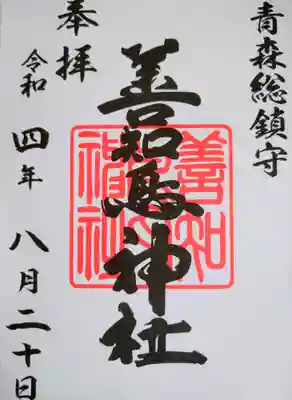 青森総鎮守
善知鳥神社
奉拝
令和四年八月二十日
善知鳥神社